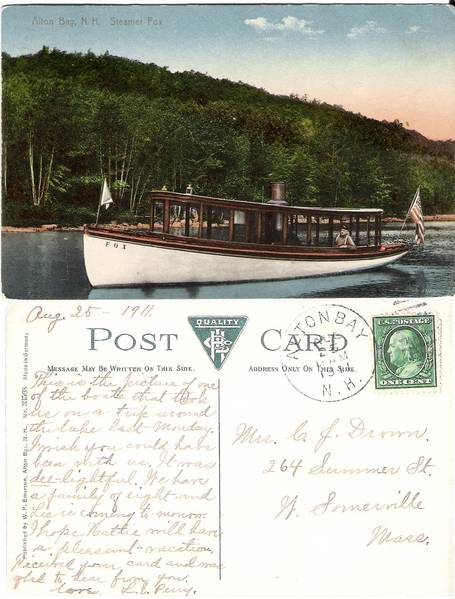 Alton Bay, N. H. Steamer Fox
FOX
Aug. 25 - 1911.
POST CARD
QUALITY
MESSAGE MAY BE WRITTEN ON THIS SIDE.
ADDRESS ONLY ON THIS SIDE.
ALTON BAY
N. H.
U.S. POSTAGE
ONE CENT
Published by W. P. Emerson, Alton Bay, N. H. Made in Germany
This is the picture of one
of the boats that took
us on a trip around
the lake last Monday.
I wish you could have
been with us. It was
dee-lightful. We have
a family of eight and
is coming to morrow.
I hope Hattie will have
a pleasant vacation.
Received your card and was
glad to hear from you.
Love L. E. Perry.
Mrs. C. J. Drown.
264 Summer St.
W. Somerville
Mass.